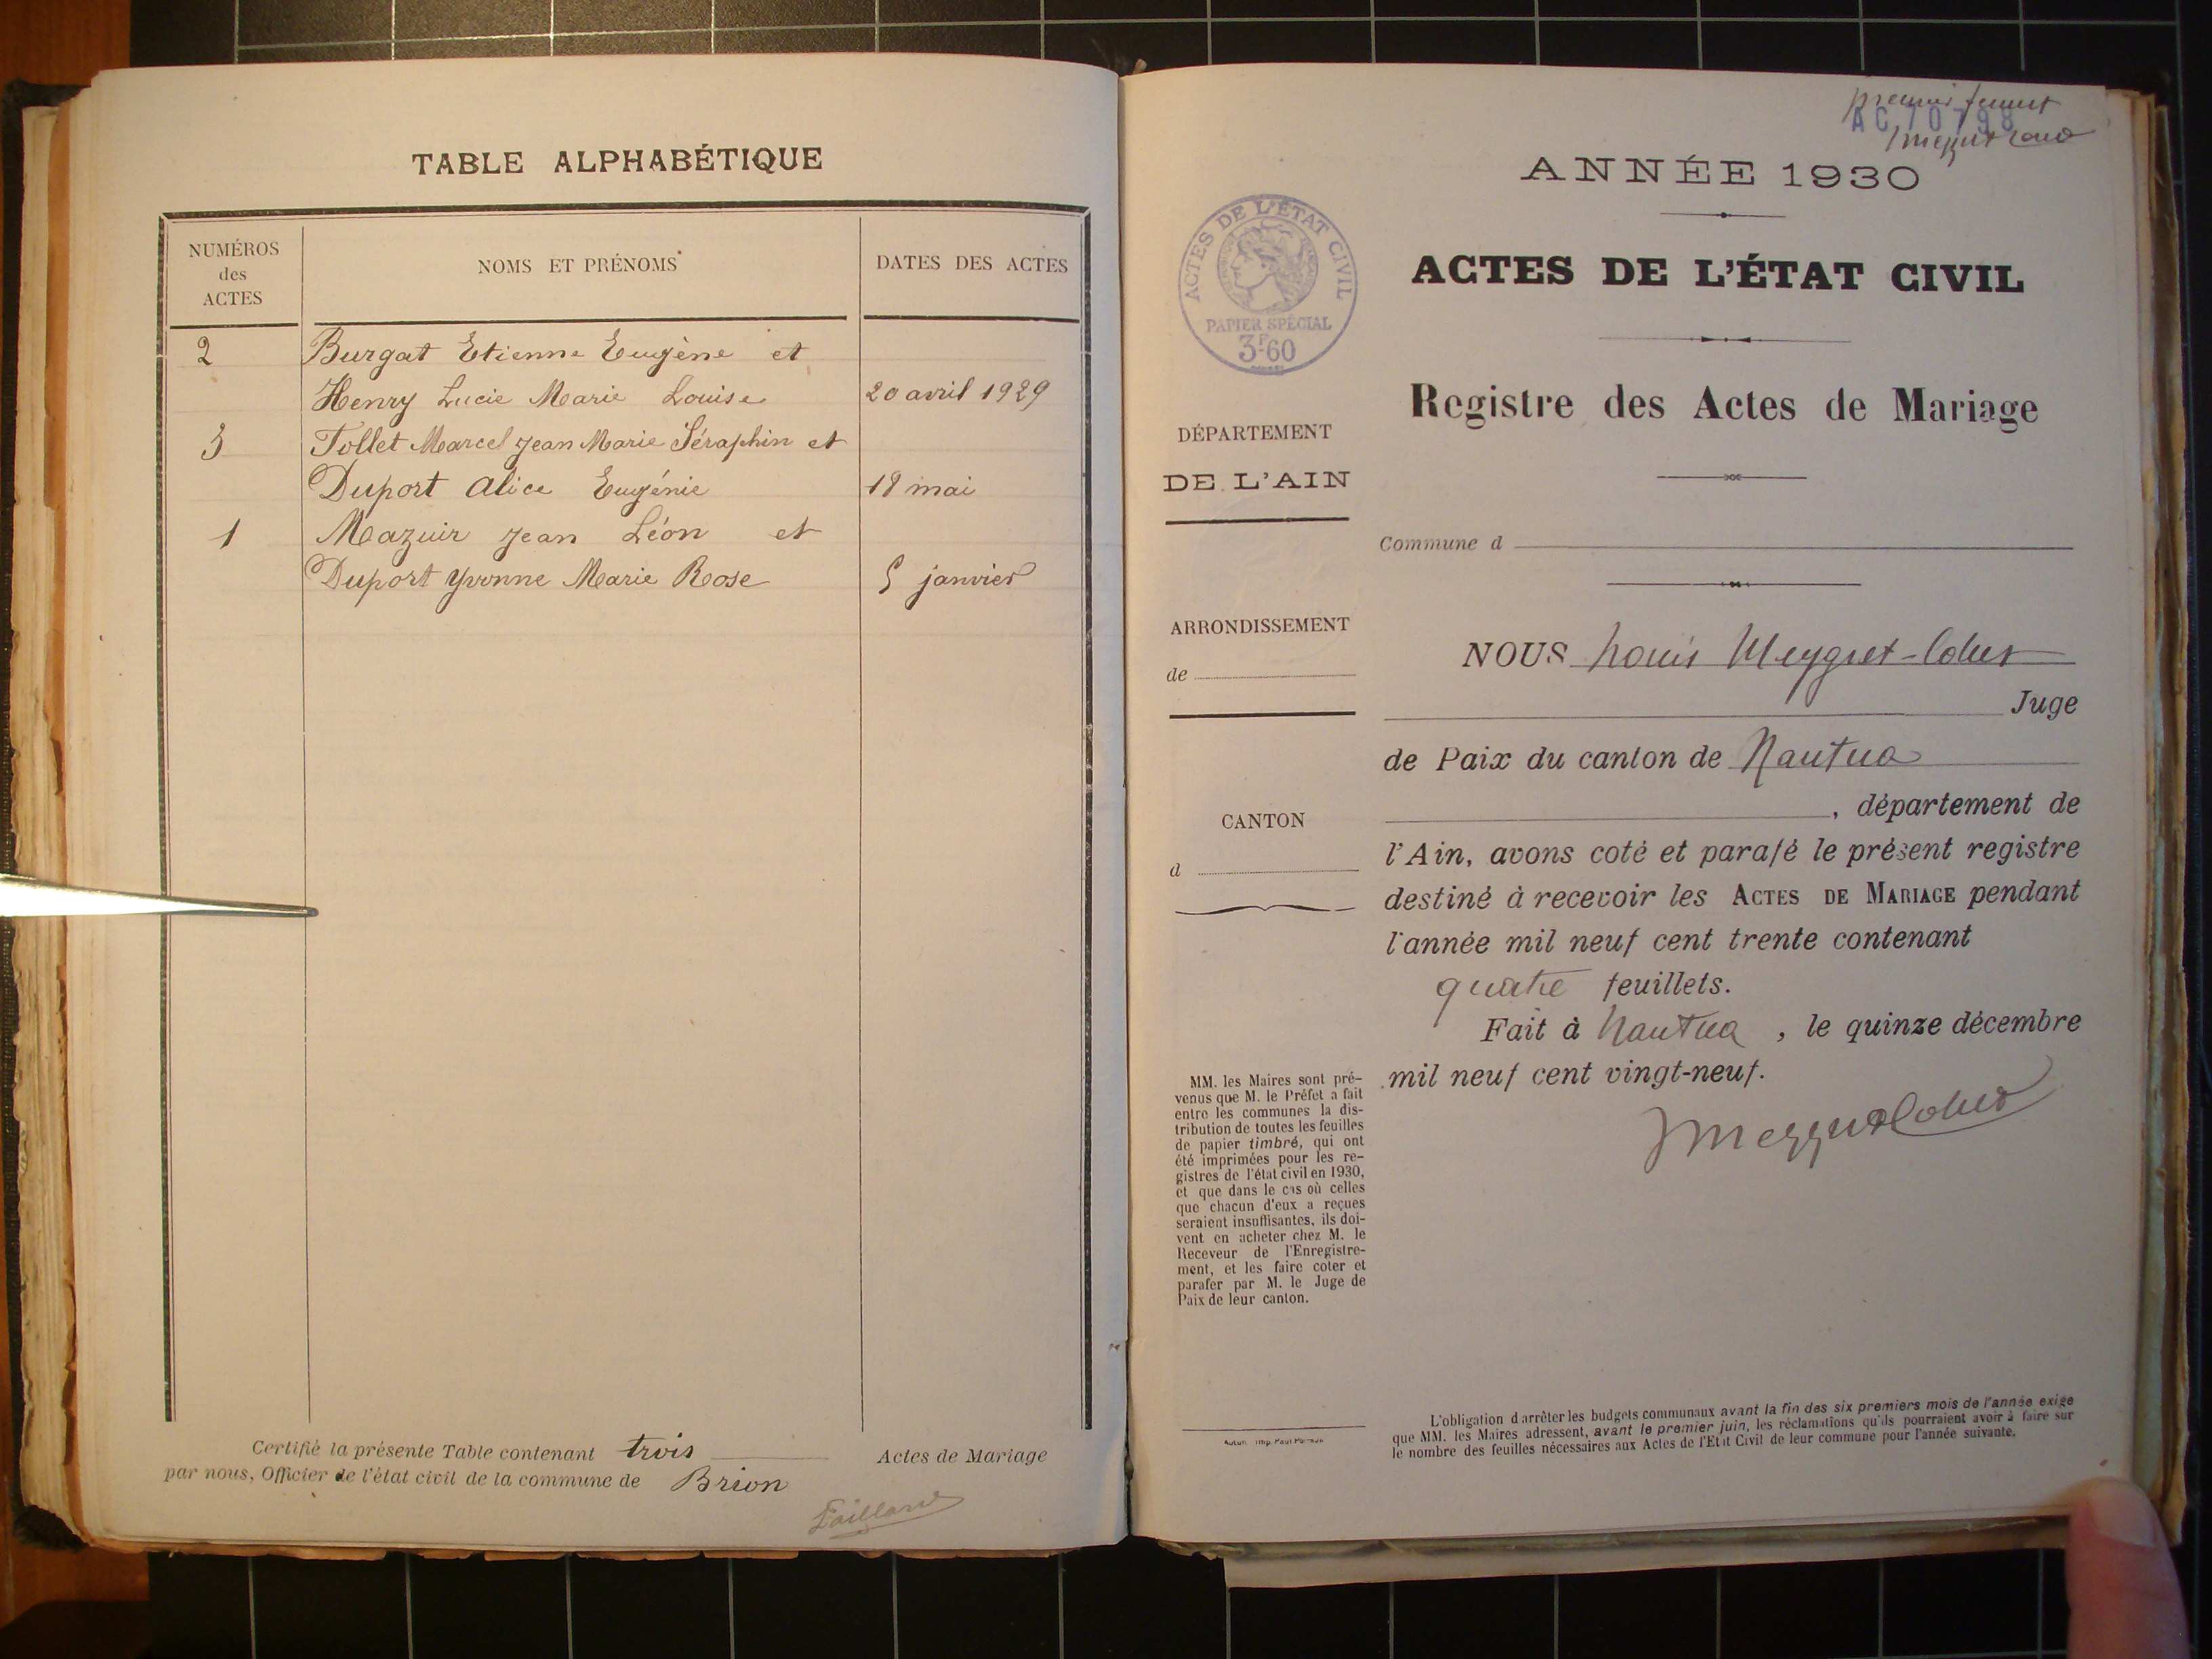 TABLE ALPHABÉTIQUE
NUMÉROS
des
ACTES
NOMS ET PRÉNOMS
DATES DES ACTES
2 Burgat Etienne Eugène et
Henry Lucie Marie Louise 20 avril 1929
3 Tollet Marcel Jean Marie Séraphin et
Duport Alice Eugénie 18 mai
1 Mazuir Jean Léon et
Duport Yvonne Marie Rose 5 janvier
Certifié la présente Table contenant trois Actes de Mariage
par nous, Officier de l'état civil de la commune de Brion
premier
AC 10798
ANNÉE 1930
ACTES DE L'ÉTAT CIVIL
PAPIER SPÉCIAL
3F60
ACTES DE L'ÉTAT CIVIL
Registre des Actes de Mariage
DÉPARTEMENT
DE L'AIN
Commune d
ARRONDISSEMENT
de
CANTON
d
NOUS Louis Meygret-Collet
Juge
de Paix du canton de Nantua
, département de
l'Ain, avons coté et parafé le présent registre
destiné à recevoir les ACTES DE MARIAGE pendant
l'année mil neuf cent trente contenant
quatre feuillets.
Fait à Nantua, le quinze décembre
mil neuf cent vingt-neuf.
MM. les Maires sont pré-
venus que M. le Préfet a fait
entre les communes la dis-
tribution de toutes les feuilles
de papier timbré, qui ont
été imprimées pour les re-
gistres de l'état civil en 1930,
et que dans le cas où celles
que chacun d'eux a reçues
seraient insuffisantes, ils doi-
vent en acheter chez M. le
Receveur de l'Enregistre-
ment, et les faire coter et
parafer par M. le Juge de
Paix de leur canton.
L'obligation d'arrêter les budgets communaux avant la fin des six premiers mois de l'année exige
que MM. les Maires adressent, avant le premier juin, les réclamations qu'ils pourraient avoir à faire sur
le nombre des feuilles nécessaires aux Actes de l'Etat Civil de leur commune pour l'année suivante.